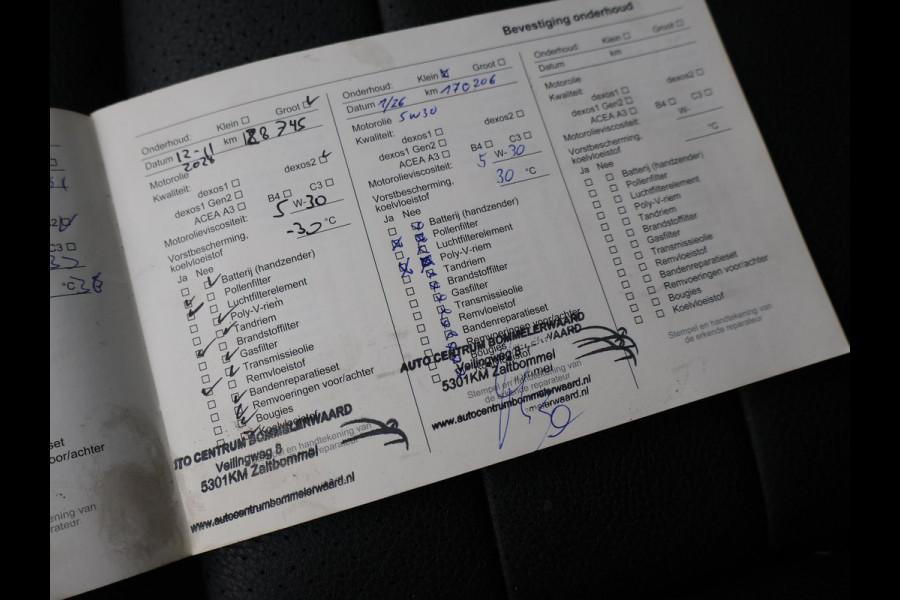 Bevestiging onderhoud
Onderhoud: Klein Groot
Datum 12-11 km 188 745
2024
Motorolie
Kwaliteit: dexos1 dexos2
dexos1 Gen2
ACEA A3 B4 C3
Motorolieviscositeit: 5 W-30
Vorstbescherming,
koelvloeistof -30 °C
Ja Nee
Batterij (handzender)
Pollenfilter
Luchtfilterelement
Poly-V-riem
Tandriem
Brandstoffilter
Gasfilter
Transmissieolie
Remvloeistof
Bandenreparatieset
Remvoeringen voor/achter
Bougies
Koelvloeistof
AUTO CENTRUM BOMMELERWAARD
Veilingweg 8
5301KM Zaltbommel
Stempel en handtekening van
de erkende reparateur
www.autocentrumbommelerwaard.nl
Onderhoud: Klein Groot
Datum 1/26 km 170206
Motorolie 5W30
Kwaliteit: dexos1 dexos2
dexos1 Gen2
ACEA A3 B4 C3
Motorolieviscositeit: 5 W-30
Vorstbescherming,
koelvloeistof 30 °C
Ja Nee
Batterij (handzender)
Pollenfilter
Luchtfilterelement
Poly-V-riem
Tandriem
Brandstoffilter
Gasfilter
Transmissieolie
Remvloeistof
Bandenreparatieset
Remvoeringen voor/achter
Bougies
AUTO CENTRUM BOMMELERWAARD
Veilingweg 8
5301KM Zaltbommel
Stempel en handtekening van
de erkende reparateur
www.autocentrumbommelerwaard.nl
Onderhoud: Klein Groot
Datum km
Motorolie
Kwaliteit: dexos1 dexos2
dexos1 Gen2
ACEA A3 B4 C3
Motorolieviscositeit: W-
Vorstbescherming,
koelvloeistof °C
Ja Nee
Batterij (handzender)
Pollenfilter
Luchtfilterelement
Poly-V-riem
Tandriem
Brandstoffilter
Gasfilter
Transmissieolie
Remvloeistof
Bandenreparatieset
Remvoeringen voor/achter
Bougies
Koelvloeistof
Stempel en handtekening van
de erkende reparateur